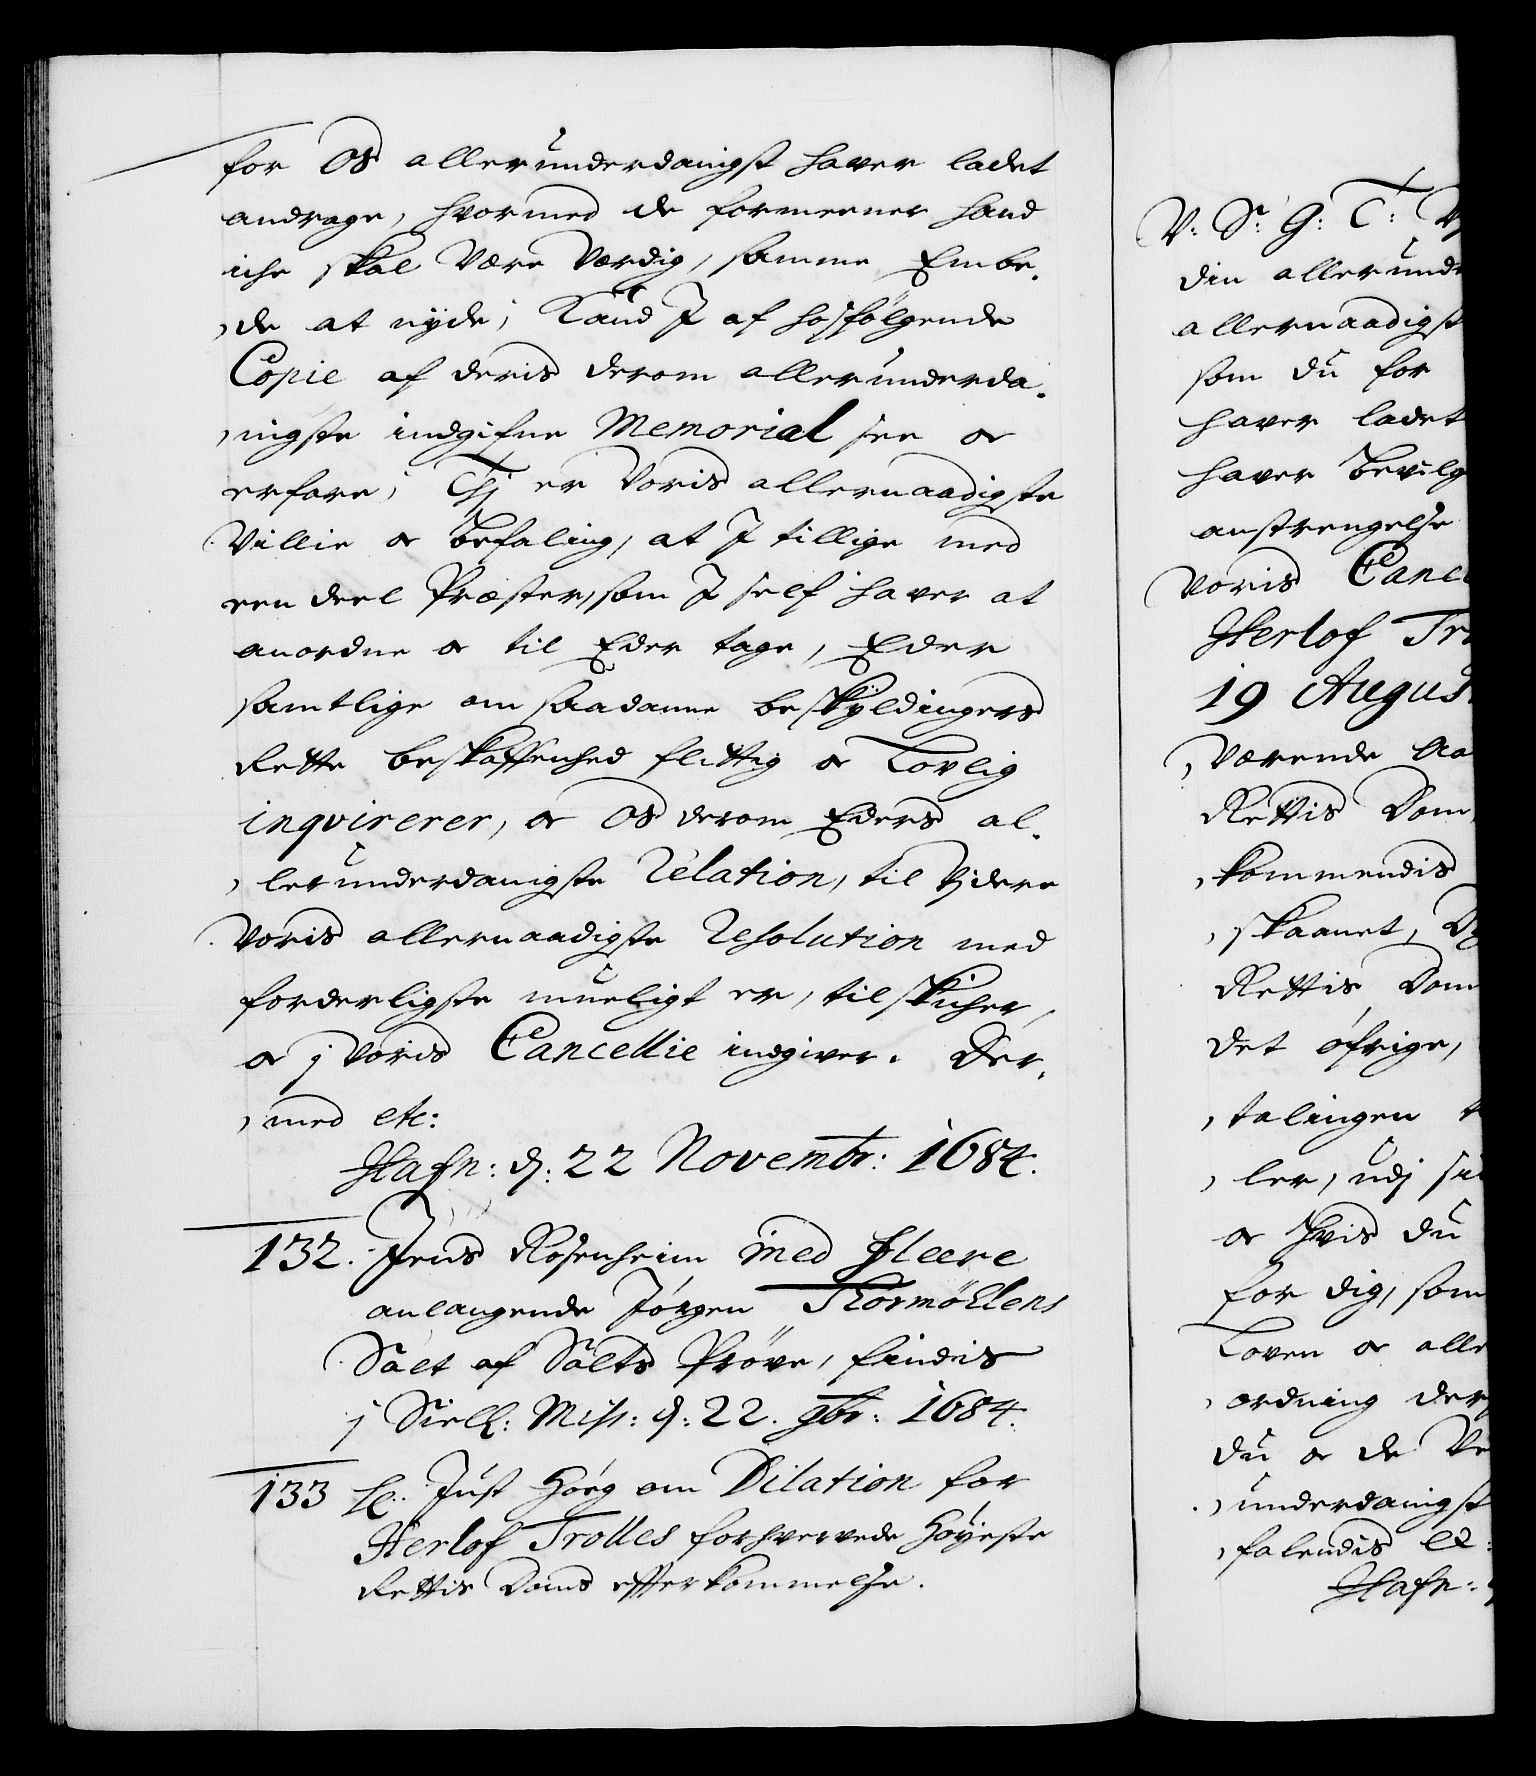 for Os allerunderdanigst hafver ladet
andrage, hvormed de formeener hand
icke skal være værdig, samme Embe,
,de at nyde; Kand I af hosfølgende
Copie af deris derom allerunderda,
,nigste indgifne Memorial see oc
erfare; Thj er Voris allernaadigste
Villie oc Befaling, at I tillige med
een deel Præster, som I self hafver at
anordne oc til Eder tage, Eder
samtlige om saadanne beskyldingers
Rette beskaffenhed flittig oc Lovlig
inqvirerer, oc Os derom Eders al,
,lerunderdanigste Relation, til Vjdere
Voris allernaadigste Resolution med
forderligste mueligt er, tilskicker,
oc j Voris Cancellie indgiver. Der,
,med etc:
Hafn: d: 22 Novembr: 1684.
132. Jens Rosenheim med fleere
anlangende Jørgen Thormøhlens
Salt af Salts Prøve, findis
j Siell: Miss: d: 22. 9br: 1684.
133 H: Just Høeg om Dilation for
Herlof Trolles forhvervede Høyeste
Rettis Doms efterkommelse.
V: S: G: T:
din allerunde
allernaadigst
som du for
hafver ladet
hafver Bevilg
anstrengelse
Voris Canc
Herlof Tr
19 August
,værende Aa
Rettis Dom
,kommendis
,skaanet,
Rettis Dom
det øfrige,
,talingen
,ler, udj
oc hvis du
for dig, som
Loven oc alle
,ordning der
du oc de Ve
,underdanigst
,falendis
Hafn: